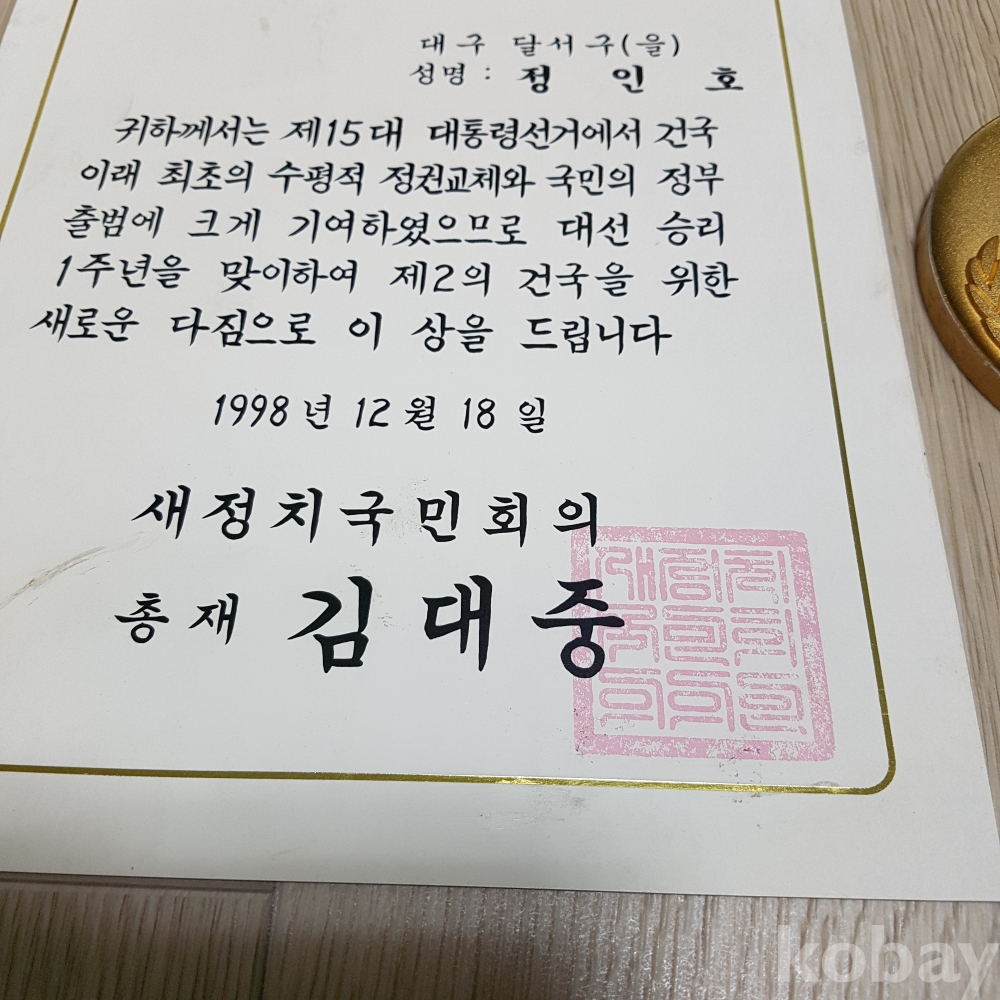 대구 달서구(을)
성명 : 정 인 호
귀하께서는 제15대 대통령선거에서 건국
이래 최초의 수평적 정권교체와 국민의 정부
출범에 크게 기여하였으므로 대선 승리
1주년을 맞이하여 제2의 건국을 위한
새로운 다짐으로 이 상을 드립니다
1998년 12월 18일
새정치국민회의
총재 김대중
kobay